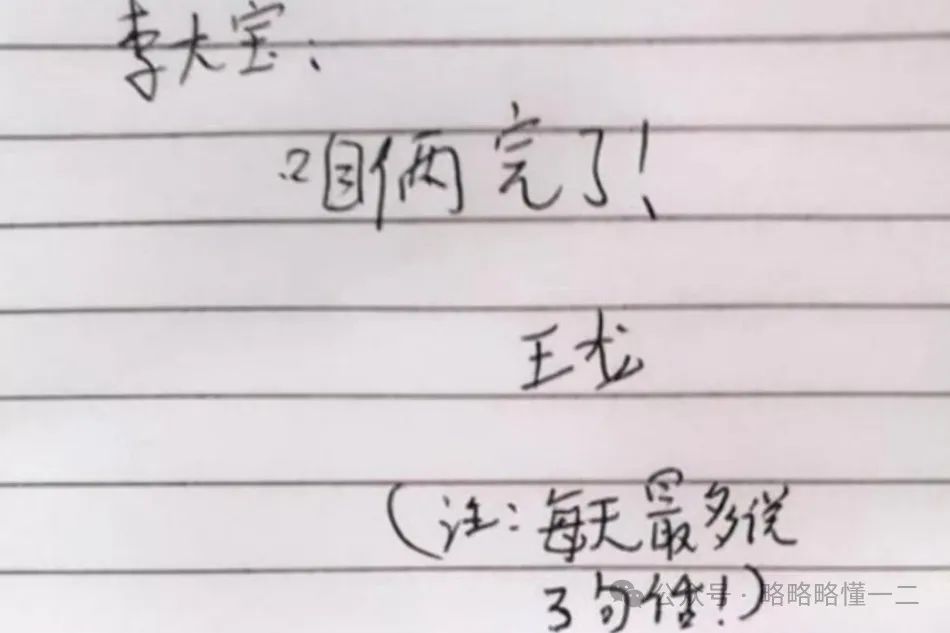 李大宝：
咱俩完了！
王龙
（注：每天最多说
3句话！）
公众号·略略略懂一二